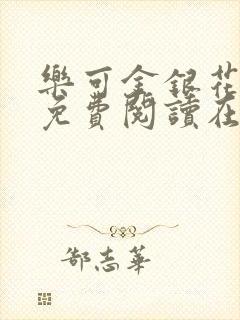 樂可金銀花
免費閱讀在
郜志華